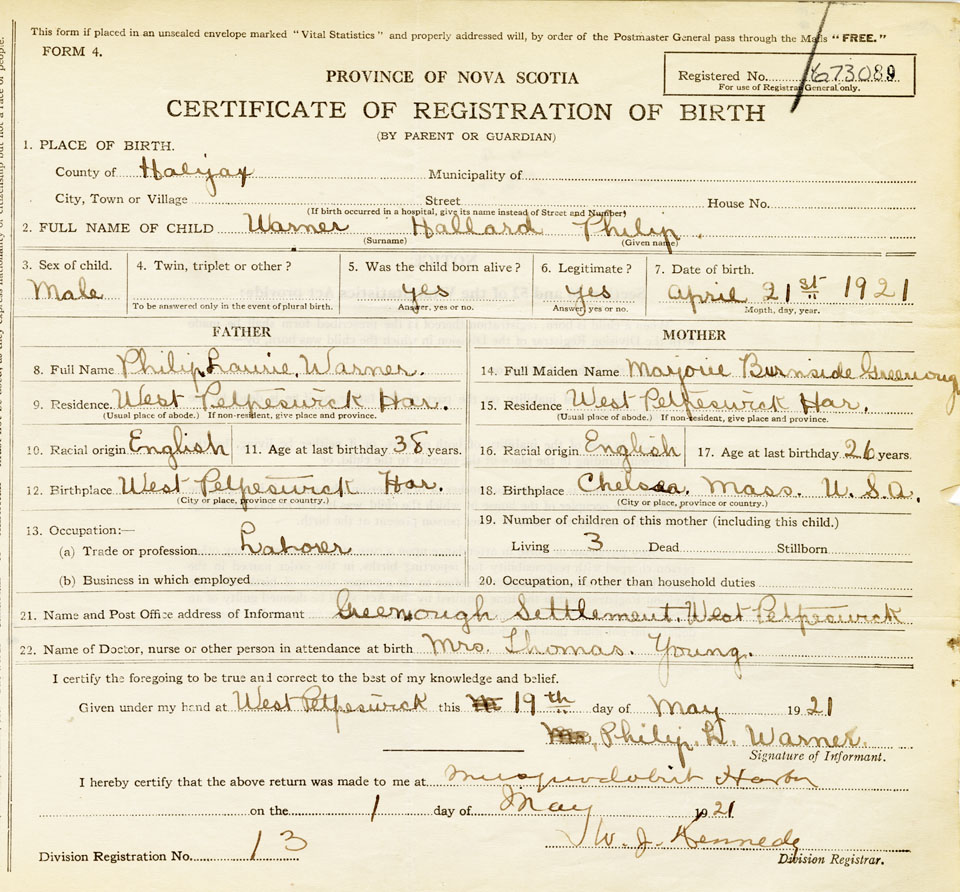 This form if placed in an unsealed envelope marked "Vital Statistics" and properly addressed will, by order of the Postmaster General pass through the Mails "FREE."
FORM 4.
PROVINCE OF NOVA SCOTIA
Registered No. 673089
For use of Registrar General only.
CERTIFICATE OF REGISTRATION OF BIRTH
(BY PARENT OR GUARDIAN)
1. PLACE OF BIRTH.
County of Halifax Municipality of
City, Town or Village Street House No.
(If birth occurred in a hospital, give its name instead of Street and Number)
2. FULL NAME OF CHILD Warner Hallard Philip.
(Surname) (Given name)
3. Sex of child. 4. Twin, triplet or other? 5. Was the child born alive? 6. Legitimate? 7. Date of birth.
Male yes yes April 21st 1921
To be answered only in the event of plural birth. Answer, yes or no. Answer, yes or no. Month, day, year.
FATHER MOTHER
8. Full Name Philip Laurie Warner. 14. Full Maiden Name Marjorie Burnside Greenoug
9. Residence West Petpeswick Har. 15. Residence West Petpeswick Har.
(Usual place of abode.) If non-resident, give place and province. (Usual place of abode.) If non-resident, give place and province.
10. Racial origin English 11. Age at last birthday 38 years. 16. Racial origin English 17. Age at last birthday 26 years.
12. Birthplace West Petpeswick Har. 18. Birthplace Chelsea. Mass. U.S.A.
(City or place, province or country.) (City or place, province or country.)
13. Occupation:— 19. Number of children of this mother (including this child.)
(a) Trade or profession Laborer Living 3 Dead Stillborn
(b) Business in which employed 20. Occupation, if other than household duties
21. Name and Post Office address of Informant Greenough Settlement. West Petpeswick
22. Name of Doctor, nurse or other person in attendance at birth Mrs. Thomas. Young.
I certify the foregoing to be true and correct to the best of my knowledge and belief.
Given under my hand at West Petpeswick this 19th day of May 1921
Philip L. Warner.
Signature of Informant.
I hereby certify that the above return was made to me at Musquodoboit Harbor
on the 1 day of May 1921
W. J. Kennedy
Division Registration No. 13 Division Registrar.